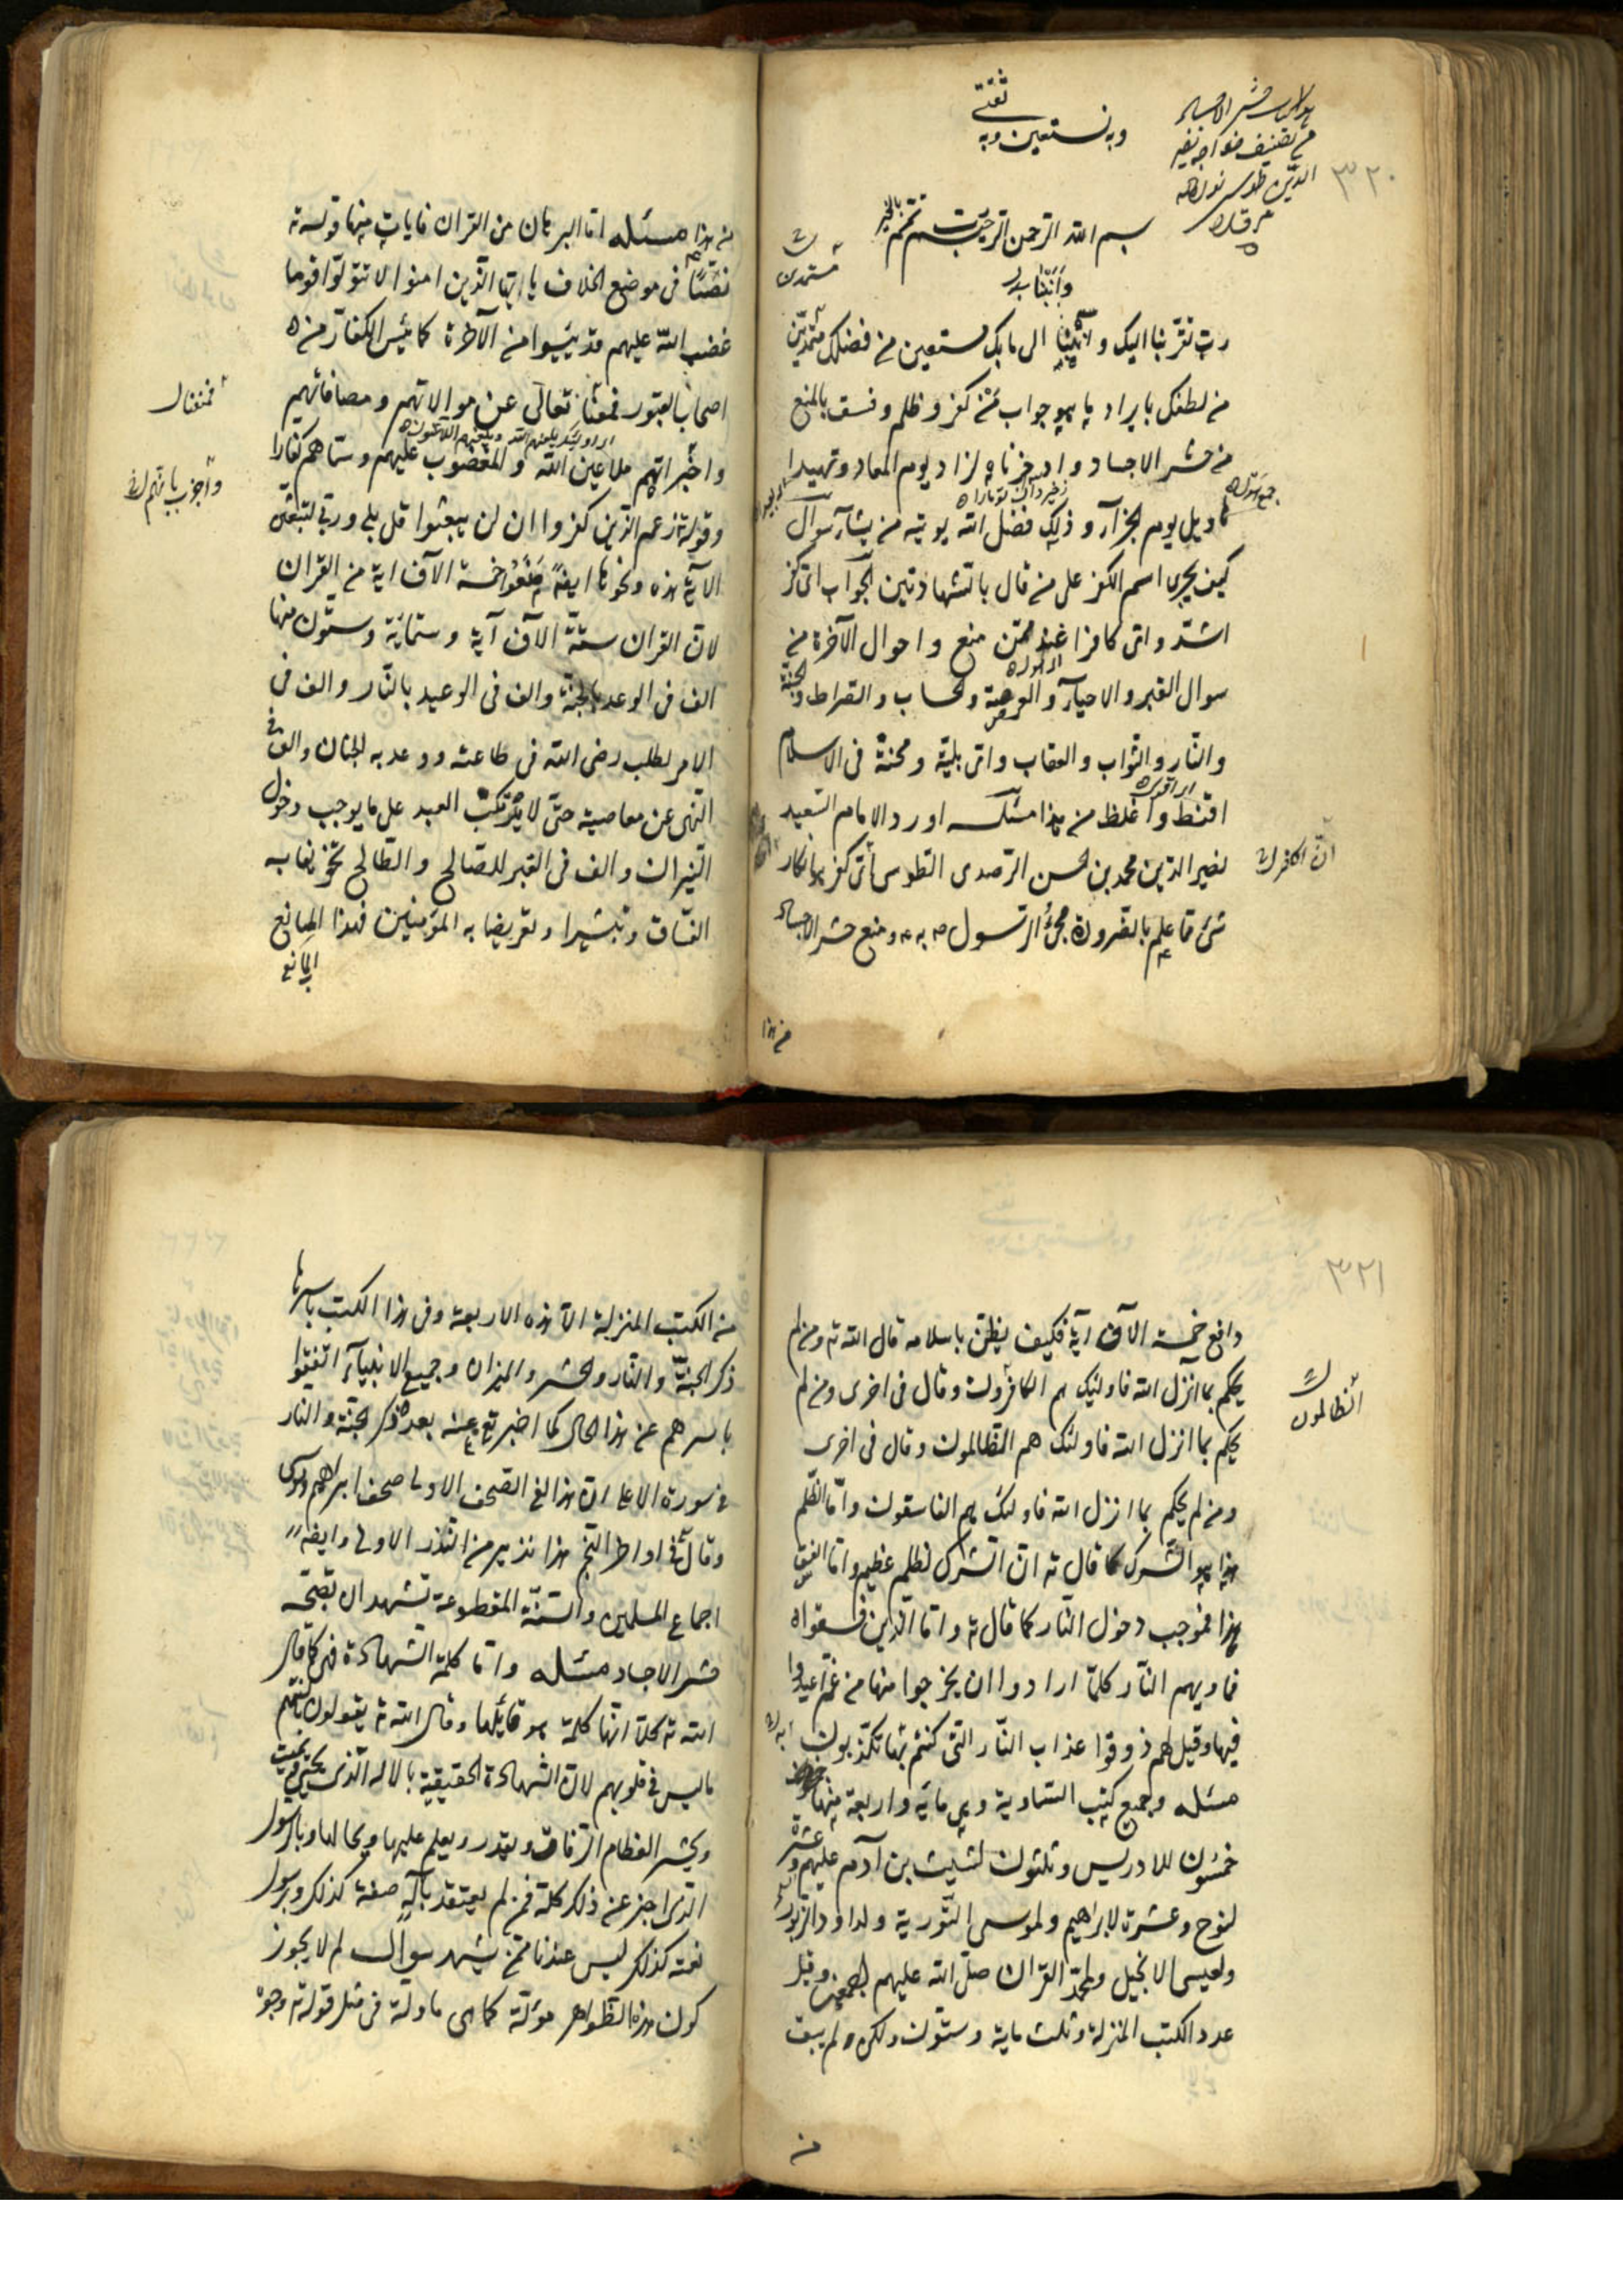 ثقتي
وبه نستعين وبه
من تصنيف خواجه نصير
الدين طوسي
٣٢٠
بسم الله الرحمن الرحيم رب تمم بالخير
رب تقربنا اليك و الى بابك مستعين من فضلك مستمدين
من لطفك بايراد ما هو جواب عمن كفر وظلم وفسق بالمنع
من حشر الاجساد وادخرناه لزاد يوم المعاد وتمهيدا
يوم الجزآء و ذلك فضل الله يوتيه من يشآء سوال
كيف يجرى اسم الكفر على من قال بالشهادتين الجواب اى كفر
اشد واى كافر اعند ممن منع و احوال الآخرة من
سوال القبر والاحيآء و والحساب والصراط والجنة
والنار والثواب والعقاب واى بلية ومحنة فى الاسلام
اقنط واغلظ من هذا مسئله اورد الامام السعيد
نصير الدين محمد بن الحسن الطوسى أى كفر هو انكار
شئ ما علم بالضرورة مجئ الرسول به ومنع حشر الاجساد
ان الكافر
من هذا
من هذا مسئله اما البرهان من القران فايات منها قوله ته
نصا فى موضع الخلاف يا ايها الذين امنوا لا تتولوا قوما
غضب الله عليهم قد يئسوا من الآخرة كما يئس الكفار من
اصحاب القبور فمنعنا تعالى عن موالاتهم ومصافاتهم
اولئك يلعنهم الله ويلعنهم اللاعنون
واخبر انهم ملاعين الله والمغضوب عليهم وسماهم كفارا
وقوله زعم الذين كفروا ان لن يبعثوا قل بلى وربى لتبعثن
الآية هذه ونحوها ايضا خمسة الآف اية من القران
لان القران ستة الآف آية وستمائة وستون منها
الف فى الوعد بالجنة والف فى الوعيد بالنار والف فى
الامر لطلب رضى الله فى طاعته ووعد به الجنان والف فى
النهى عن معاصيه حتى لا يرتكب العبد على ما يوجب دخول
النيران والف فى القبر للصالح والطالح تخويفا به
الفساق وتبشيرا وتعريضا به المؤمنين فهذا المانع
فمنعنا
واخبر بانهم
٣٢١
دافع خمسة الآف آية فكيف يظن باسلامه قال الله ته ومن لم
يحكم بما انزل الله فاولئك هم الكافرون وقال فى اخرى ومن لم
يحكم بما انزل الله فاولئك هم الظالمون وقال فى اخرى
ومن لم يحكم بما انزل الله فاولئك هم الفاسقون واما الظلم
هذا هو الشرك كما قال ته ان الشرك لظلم عظيم واما الفسق
هذا فموجب دخول النار كما قال ته واما الذين فسقوا
فماويهم النار كلما ارادوا ان يخرجوا منها من غم اعيدوا
فيها وقيل لهم ذوقوا عذاب النار التى كنتم بها تكذبون
مسئله وجميع كتب السماوية وهى مائة واربعة منها
خمسون للادريس وثلثون لشيث بن آدم عليهم وعشرة
لنوح وعشرة لابراهيم ولموسى التورية ولداود الزبور
ولعيسى الانجيل ولمحمد القران صلى الله عليهم اجمعين وقيل
عدد الكتب المنزلة وثلث ماية وستون ولكن لم يبق
الظالمون
من
من الكتب المنزلة الا هذه الاربعة وفى هذا الكتب باسرها
ذكر الجنة والنار والحشر والميزان وجميع الانبيآء اتفقوا
باسرهم عن هذا الحال كما اخبر تع عنه بعد ذكر الجنة والنار
فى سورة الاعلى ان هذا لفى الصحف الاولى صحف ابراهيم وموسى
وقال فى اواخر النجم هذا نذير من النذر الاولى وايضا
اجماع المسلمين والسنة المقطوعة تشهدان بصحة
حشر الاجساد مسئله واما كلمة الشهادة فهى كما قال
الله ته كلا انها كلمة هو قائلها وقال الله ته يقولون بالسنتهم
ما ليس فى قلوبهم لان الشهادة الحقيقية بالاله الذى يحيى ويميت
ويحشر العظام الرفات ويقدر ويعلم عليها وبحالها وبالرسول
الذى اخبر عن ذلك كله فمن لم يعتقد باله صفته كذلك وبرسول
نعته كذلك ليس عندنا ممن يشهد سوال لم لا يجوز
كون هذه الظواهر مؤلة كما هى ماولة فى مثل قوله ته وجوه